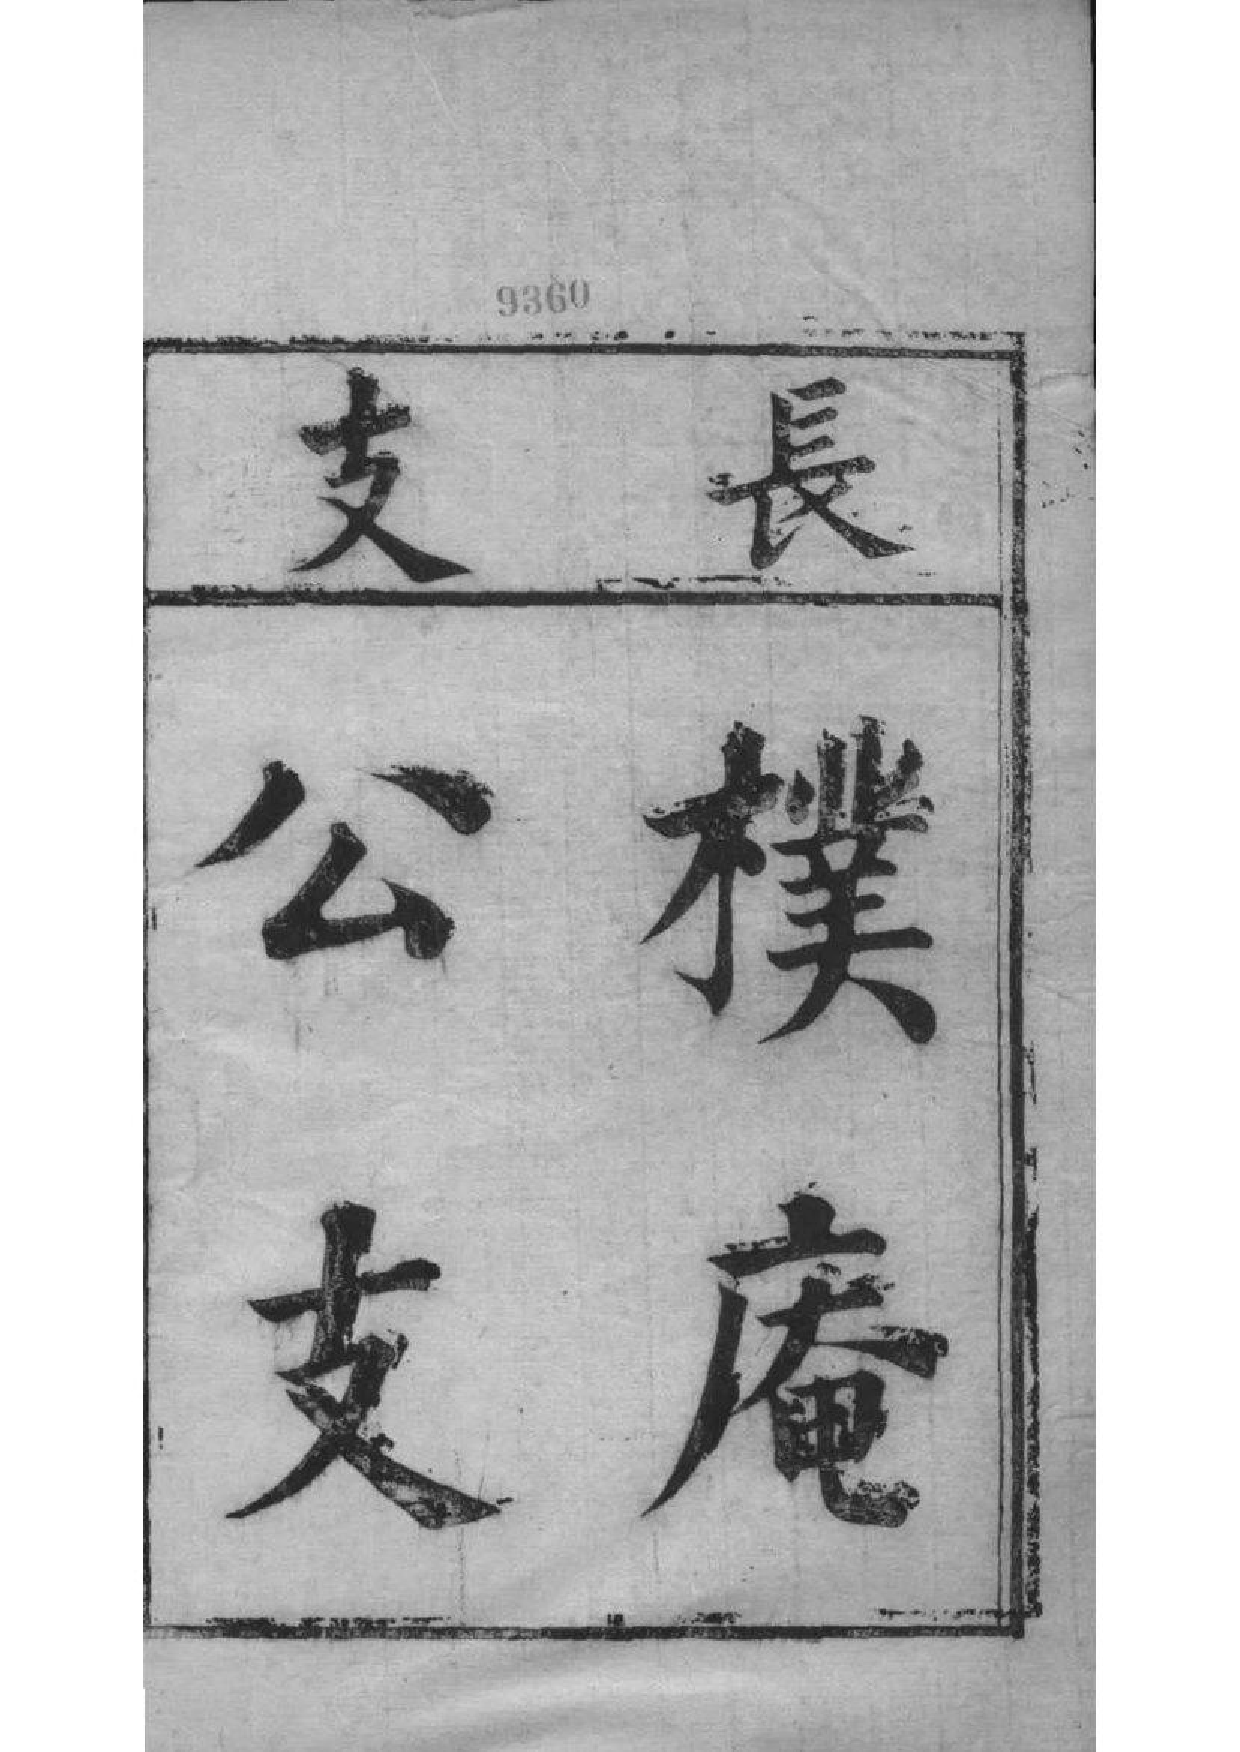 9360
長支
樸庵
公支